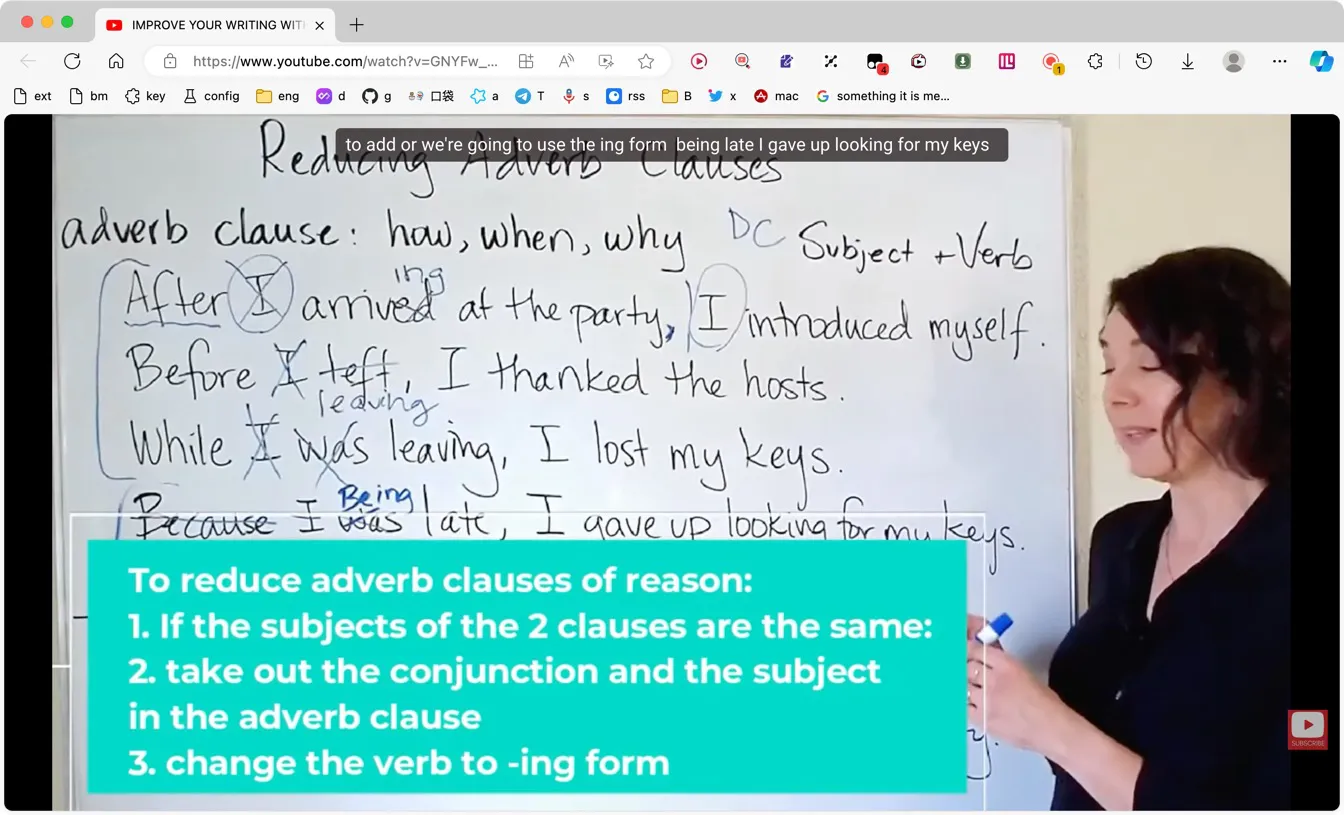 IMPROVE YOUR WRITING WIT
https://www.youtube.com/watch?v=GNYFw_...
4
1
ext
bm
key
config
eng
d
g
口袋
a
T
s
rss
B
x
mac
something it is me...
to add or we're going to use the ing form being late I gave up looking for my keys
Reducing Adverb Clauses
adverb clause: how, when, why DC Subject + Verb
ing
After I arrived at the party, I introduced myself.
Before I left, I thanked the hosts.
leaving
While I was leaving, I lost my keys.
Being
Because I was late, I gave up looking for my keys.
To reduce adverb clauses of reason:
1. If the subjects of the 2 clauses are the same:
2. take out the conjunction and the subject
in the adverb clause
3. change the verb to -ing form
SUBSCRIBE